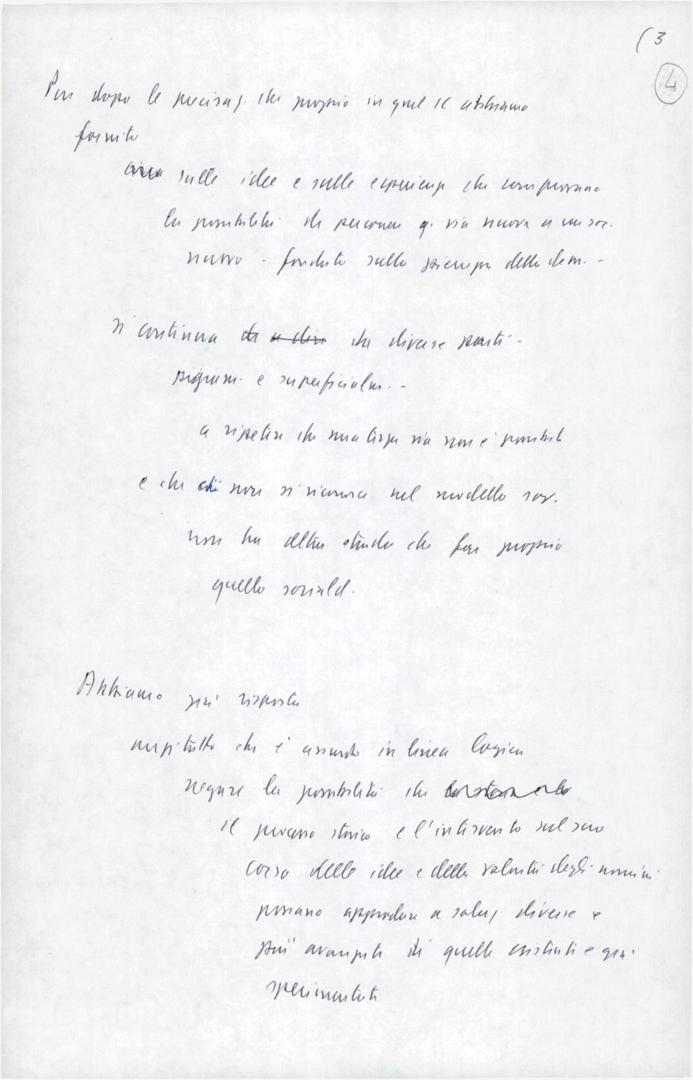 (3
4
Pur dopo le precisaz. che proprio in quel   abbiamo
fornito
sulle idee e sulle esperienze che comprovano
la possibilità di percorrere   via nuova a un soc.
nuovo - fondato sulla   della dem. -
si continua da a dire da diverse parti -
  e superficialm. -
a ripetere che una terza via non è possibile
e che chi non si riconosce nel modello sov.
non ha altra strada che far proprio
quello sociald.
Abbiamo già risposto
anzitutto che è assurdo in linea logica
negare la possibilità che
il processo storico e l'intervento sul suo
corso delle idee e della volontà degli uomini
possano approdare a soluz. diverse e
più avanzate di quelle esistenti e già
sperimentate